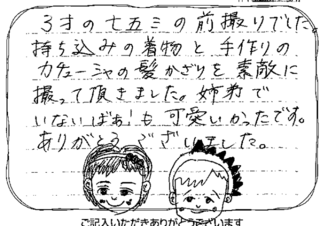 3才の七五三の前撮りでした。
持ち込みの着物と手作りの
カチューシャの髪かざりを素敵に
撮って頂きました。姉弟で
いないばぁ!も可愛いかったです。
ありがとうございました。
ご記入いただきありがとうございます